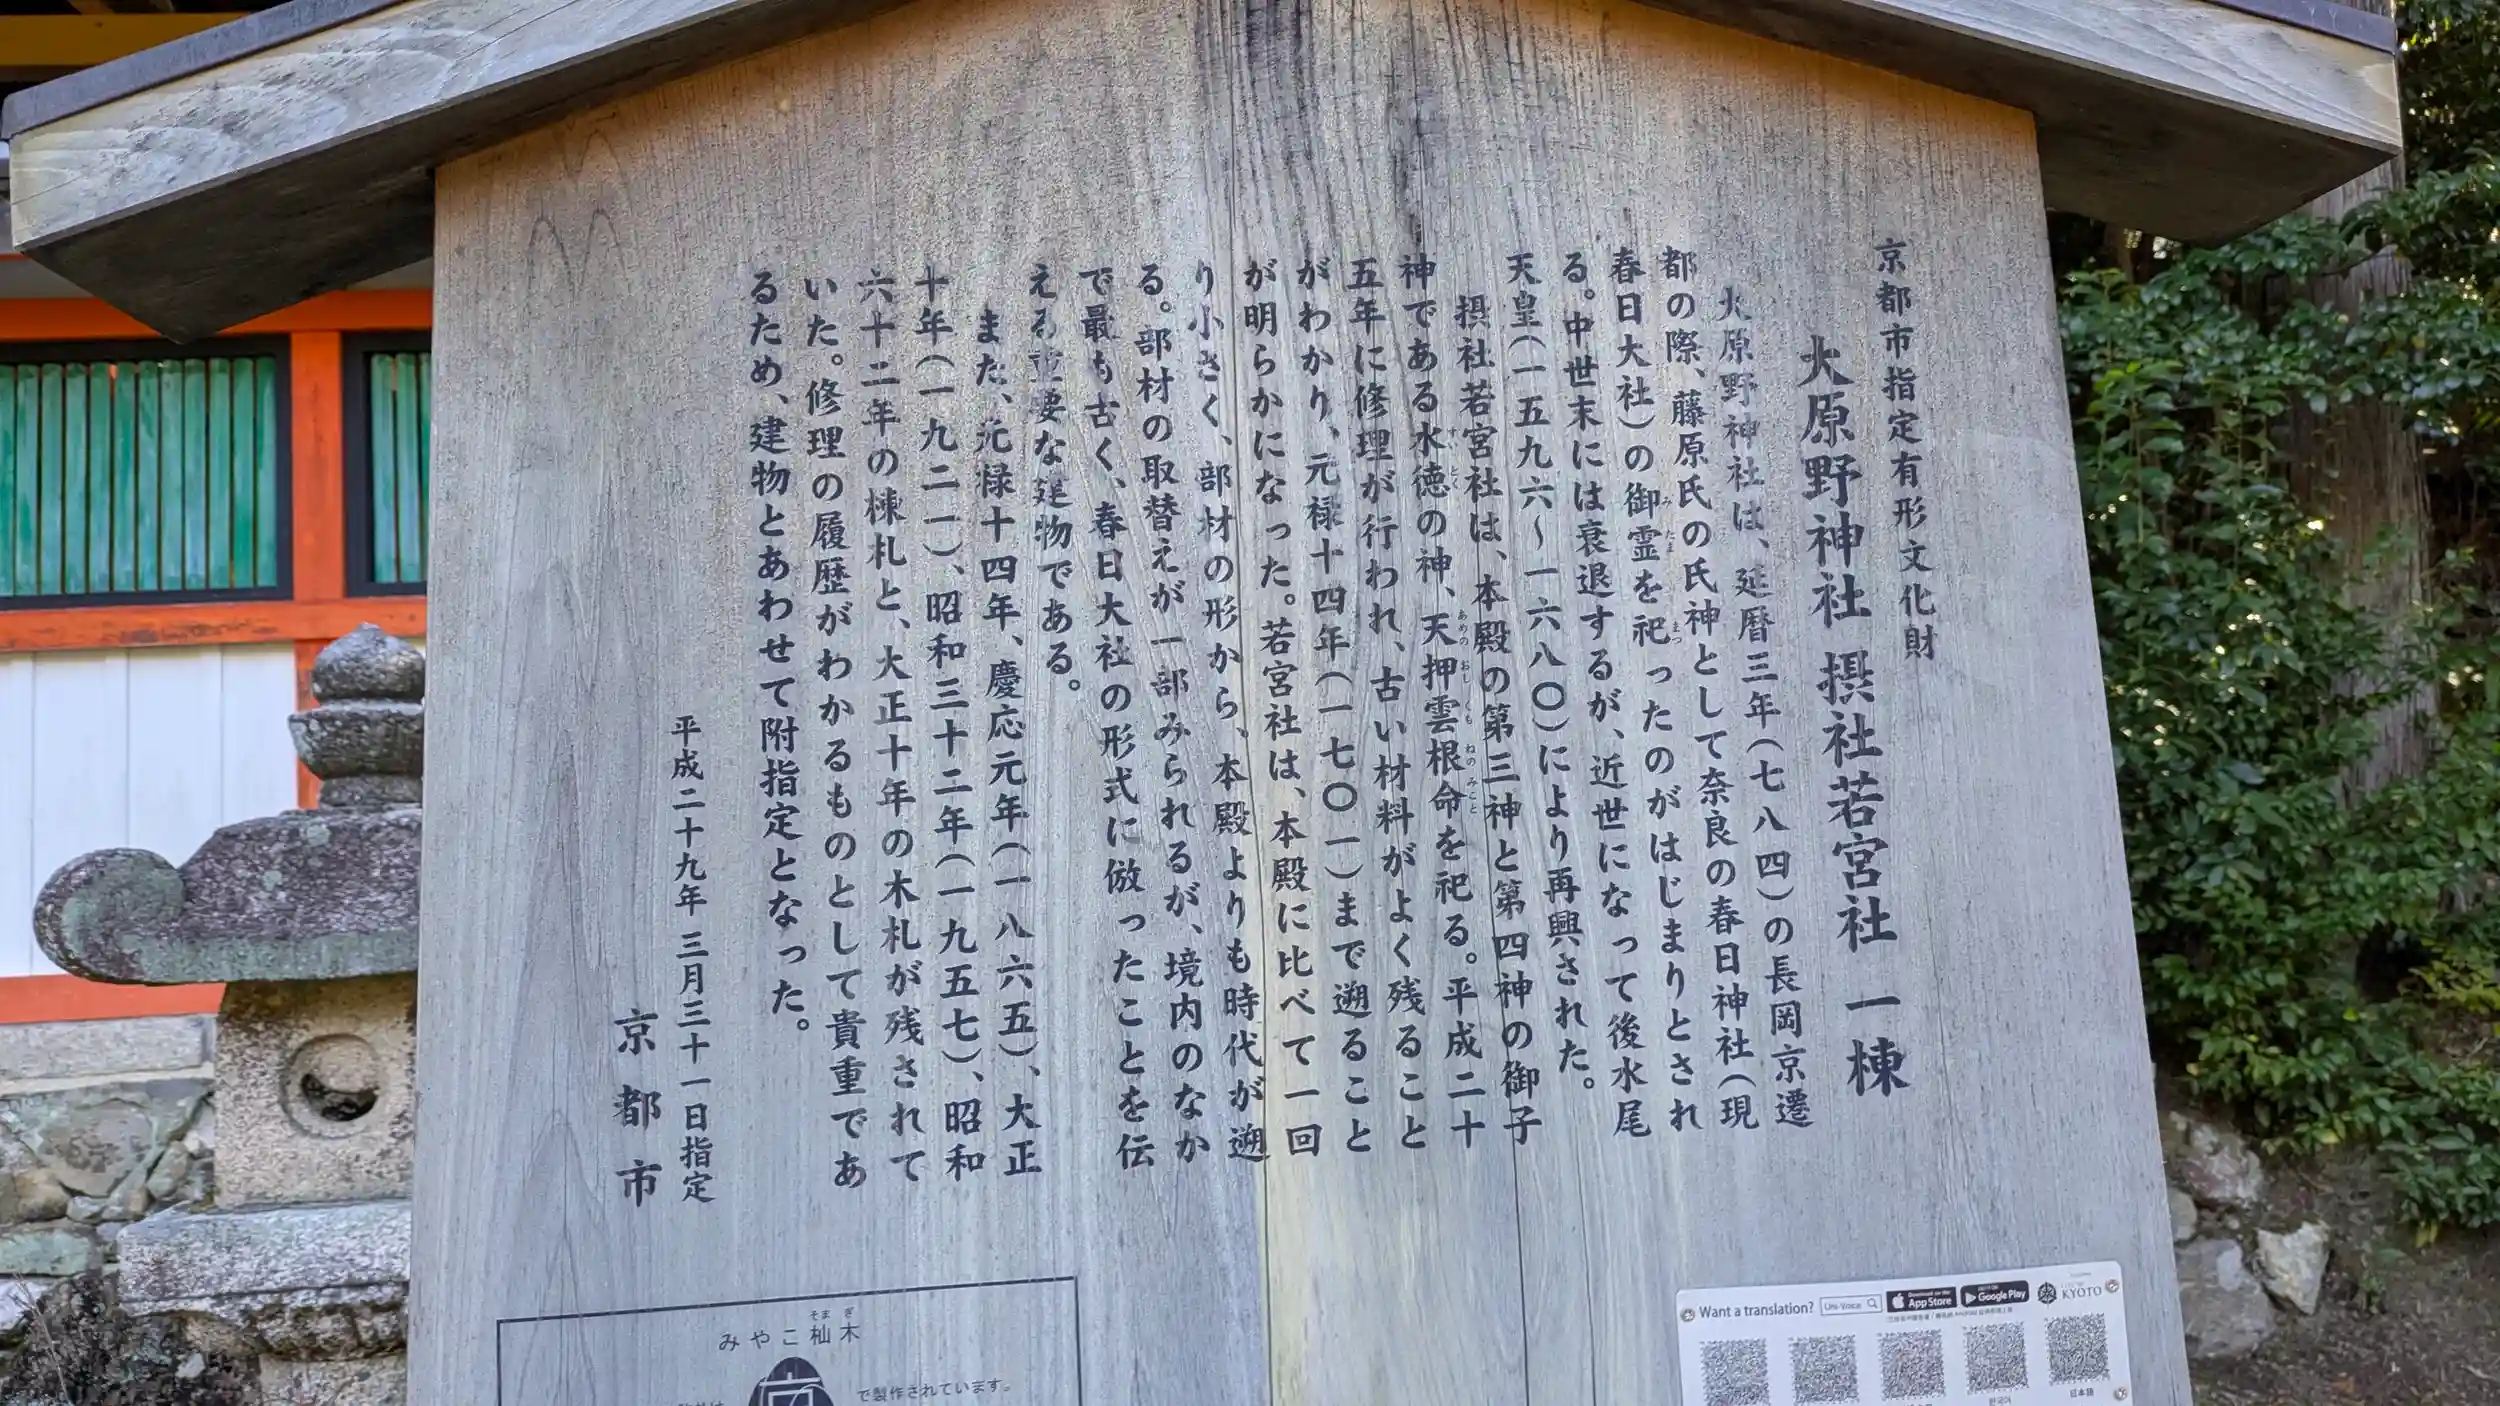 京都市指定有形文化財
大原野神社 摂社若宮社 一棟
大原野神社は、延暦三年(七八四)の長岡京遷
都の際、藤原氏の氏神として奈良の春日神社(現
春日大社)の御霊を祀ったのがはじまりとされ
る。中世末には衰退するが、近世になって後水尾
天皇(一五九六〜一六八〇)により再興された。
摂社若宮社は、本殿の第三神と第四神の御子
神である水徳の神、天押雲根命を祀る。平成二十
五年に修理が行われ、古い材料がよく残ること
がわかり、元禄十四年(一七〇一)まで遡ること
が明らかになった。若宮社は、本殿に比べて一回
り小さく、部材の形から、本殿よりも時代が遡
る。部材の取替えが一部みられるが、境内のなか
で最も古く、春日大社の形式に倣ったことを伝
える重要な建物である。
また、元禄十四年、慶応元年(一八六五)、大正
十年(一九二一)、昭和三十二年(一九五七)、昭和
六十二年の棟札と、大正十年の木札が残されて
いた。修理の履歴がわかるものとして貴重であ
るため、建物とあわせて附指定となった。
平成二十九年 三月三十一日指定
京都市
みやこ杣木
で製作されています。
Want a translation? Uni-Voice
Download on the App Store
GET IT ON Google Play
KYOTO
日本語